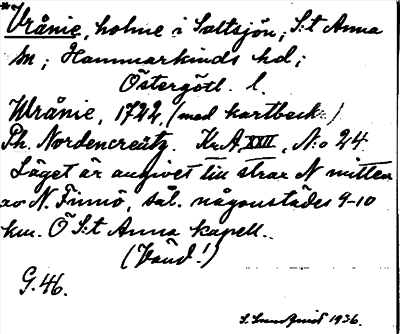 *Vrånie, holme i Saltsjön, S:t Anna
sn; Hammarkinds hd;
Östergötl. l.
Wrånie, 1722, (med kartbeskr.)
Ph. Nordencreütz. Kr.A. XXII, N:o 24.
Läget är angivet till strax N mitten
av N. Finnö, säl. någonstädes 9-10
km. Ö S:t Anna kapell.
(Vänd!)
G. 46.
S. Sundquist 1936.